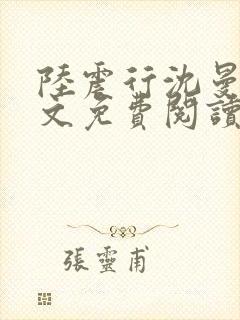 陸震行沈曼
文免費閱讀
張靈甫